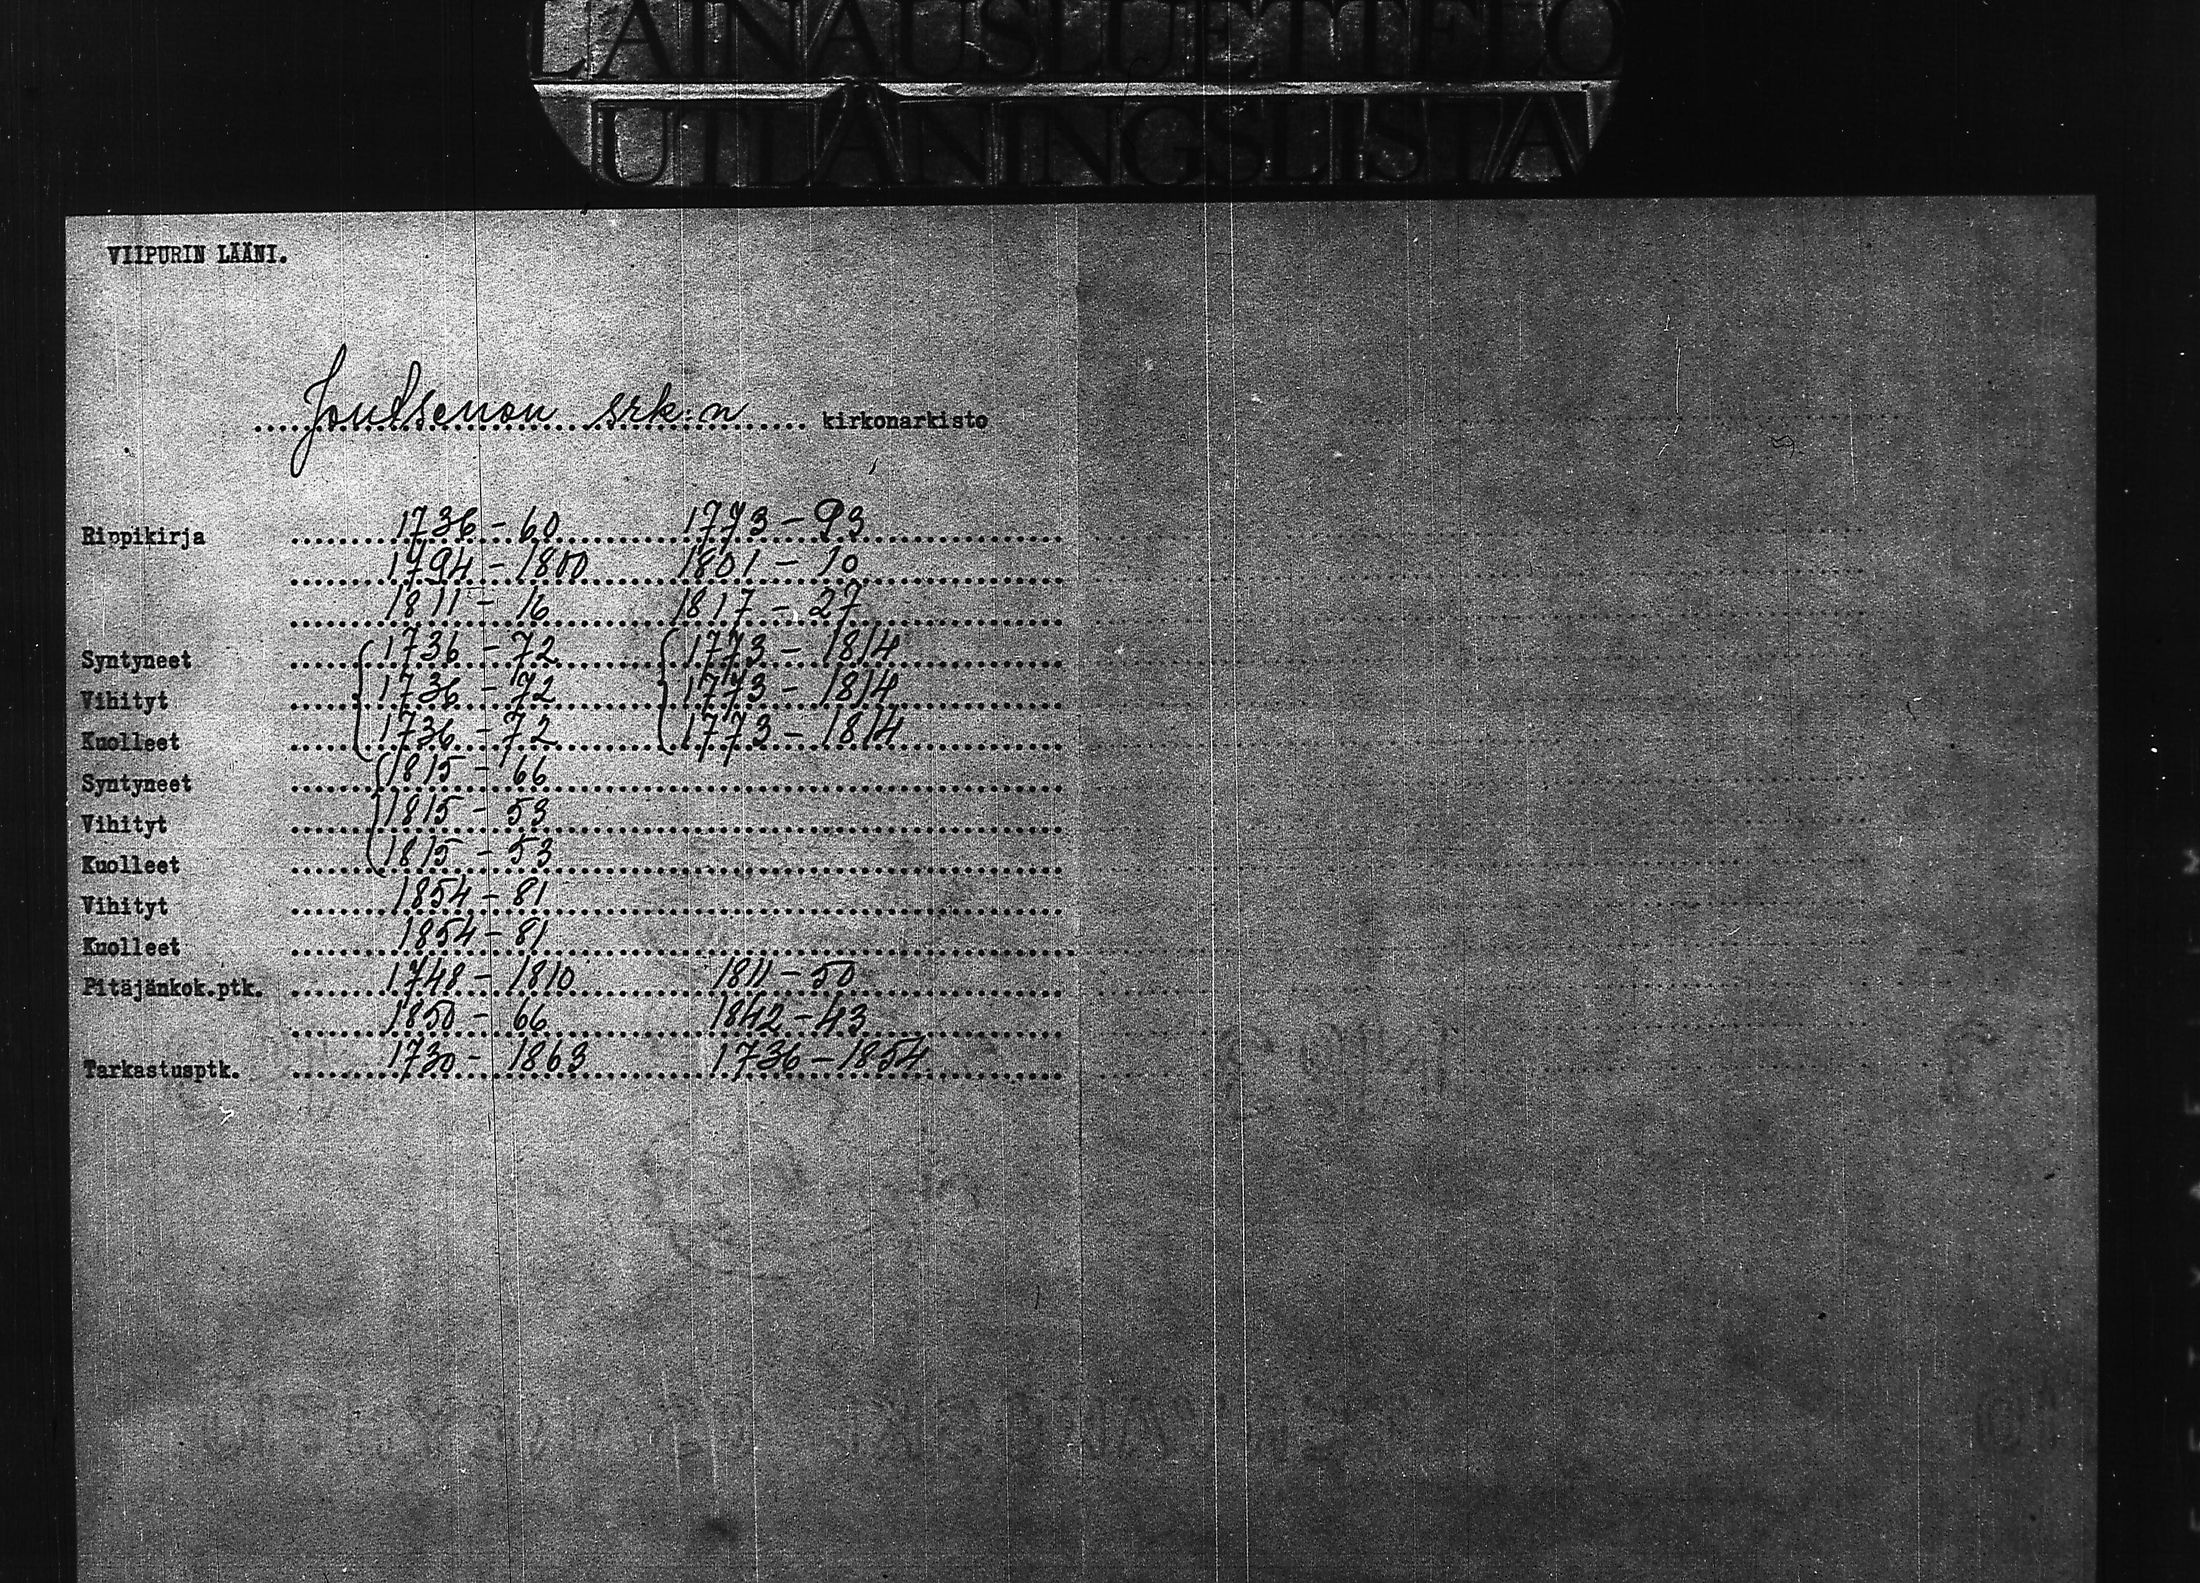 LAINAUSLUETTELO
UTLÅNINGSLISTA
VIIPURIN LÄÄNI.
Joutsenon srk:n kirkonarkisto
Rippikirja 1736-60 1773-93
1794-1800 1801-10
1811-16 1817-27
Syntyneet 1736-72 1773-1814
Vihityt 1736-72 1773-1814
Kuolleet 1736-72 1773-1814
Syntyneet 1815-66
Vihityt 1815-53
Kuolleet 1815-53
Vihityt 1854-81
Kuolleet 1854-81
Pitäjänkok.ptk. 1748-1810 1811-50
1850-66 1842-43
Tarkastusptk. 1730-1863 1736-1854